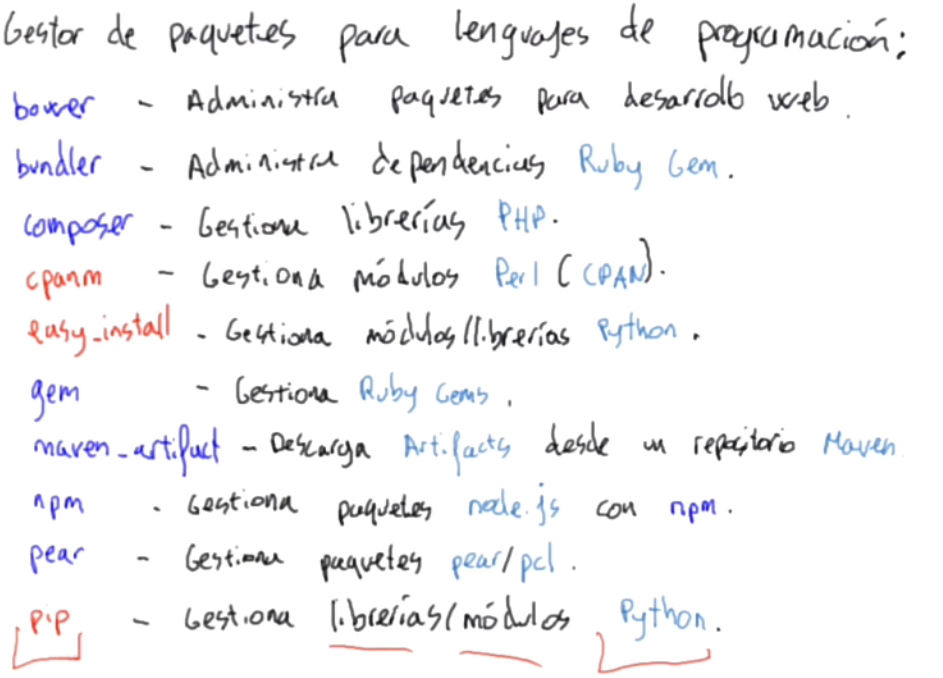 Gestor de paquetes para lenguajes de programación:
bower - Administra paquetes para desarrollo web.
bundler - Administra dependencias Ruby Gem.
composer - Gestiona librerías PHP.
cpanm - Gestiona módulos Perl (CPAN).
easy_install - Gestiona módulos/librerías Python.
gem - Gestiona Ruby Gems.
maven_artifact - Descarga Artifacts desde un repositorio Maven
npm - Gestiona paquetes node.js con npm.
pear - Gestiona paquetes pear/pcl.
pip - Gestiona librerías/módulos Python.